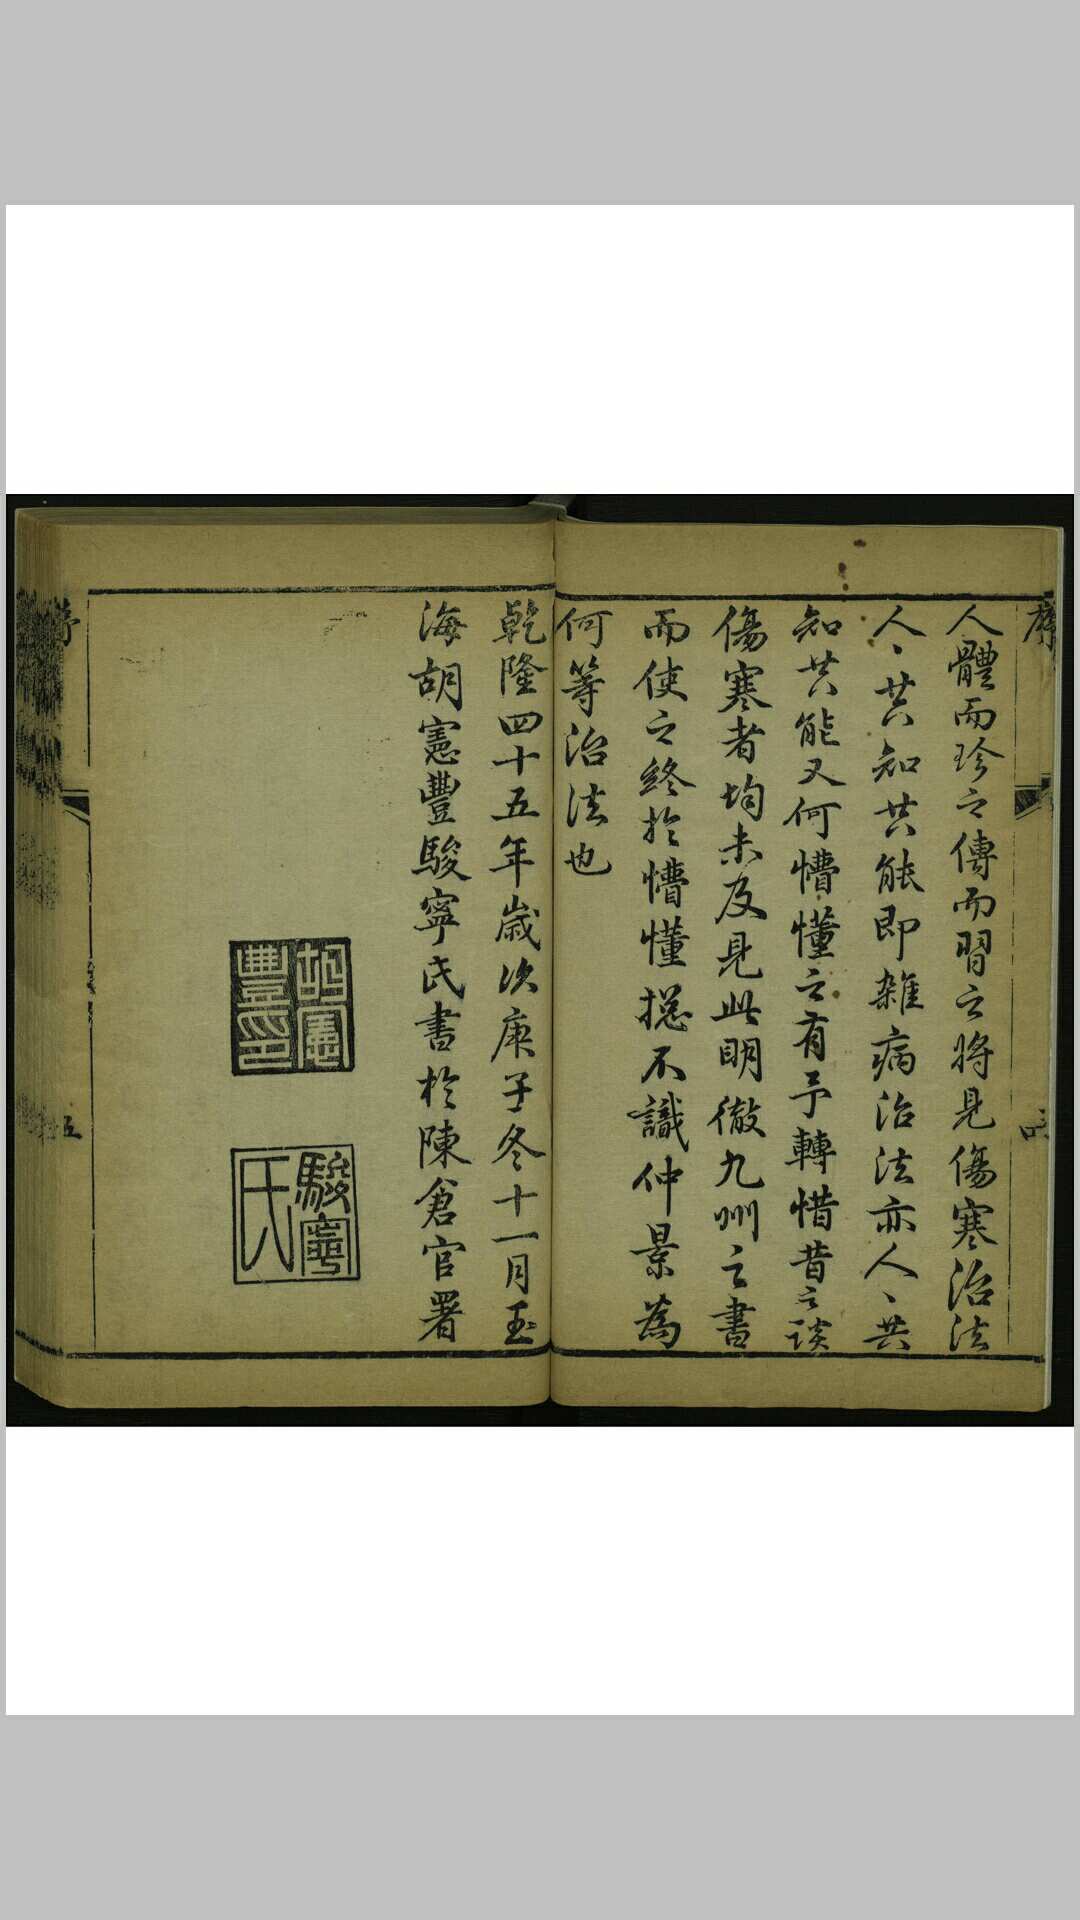 序
人體而珍之傳而習之將見傷寒治法
人、共知共能即雜病治法亦人、共
知共能又何懵懂之有予轉惜昔之談
傷寒者均未及見此明徹九州之書
而使之終於懵懂摠不識仲景為
何等治法也
乾隆四十五年歲次庚子冬十一月玉
海胡憲豐駿寧氏書於陳倉官署
胡憲
豐印
駿寧
氏
序
五